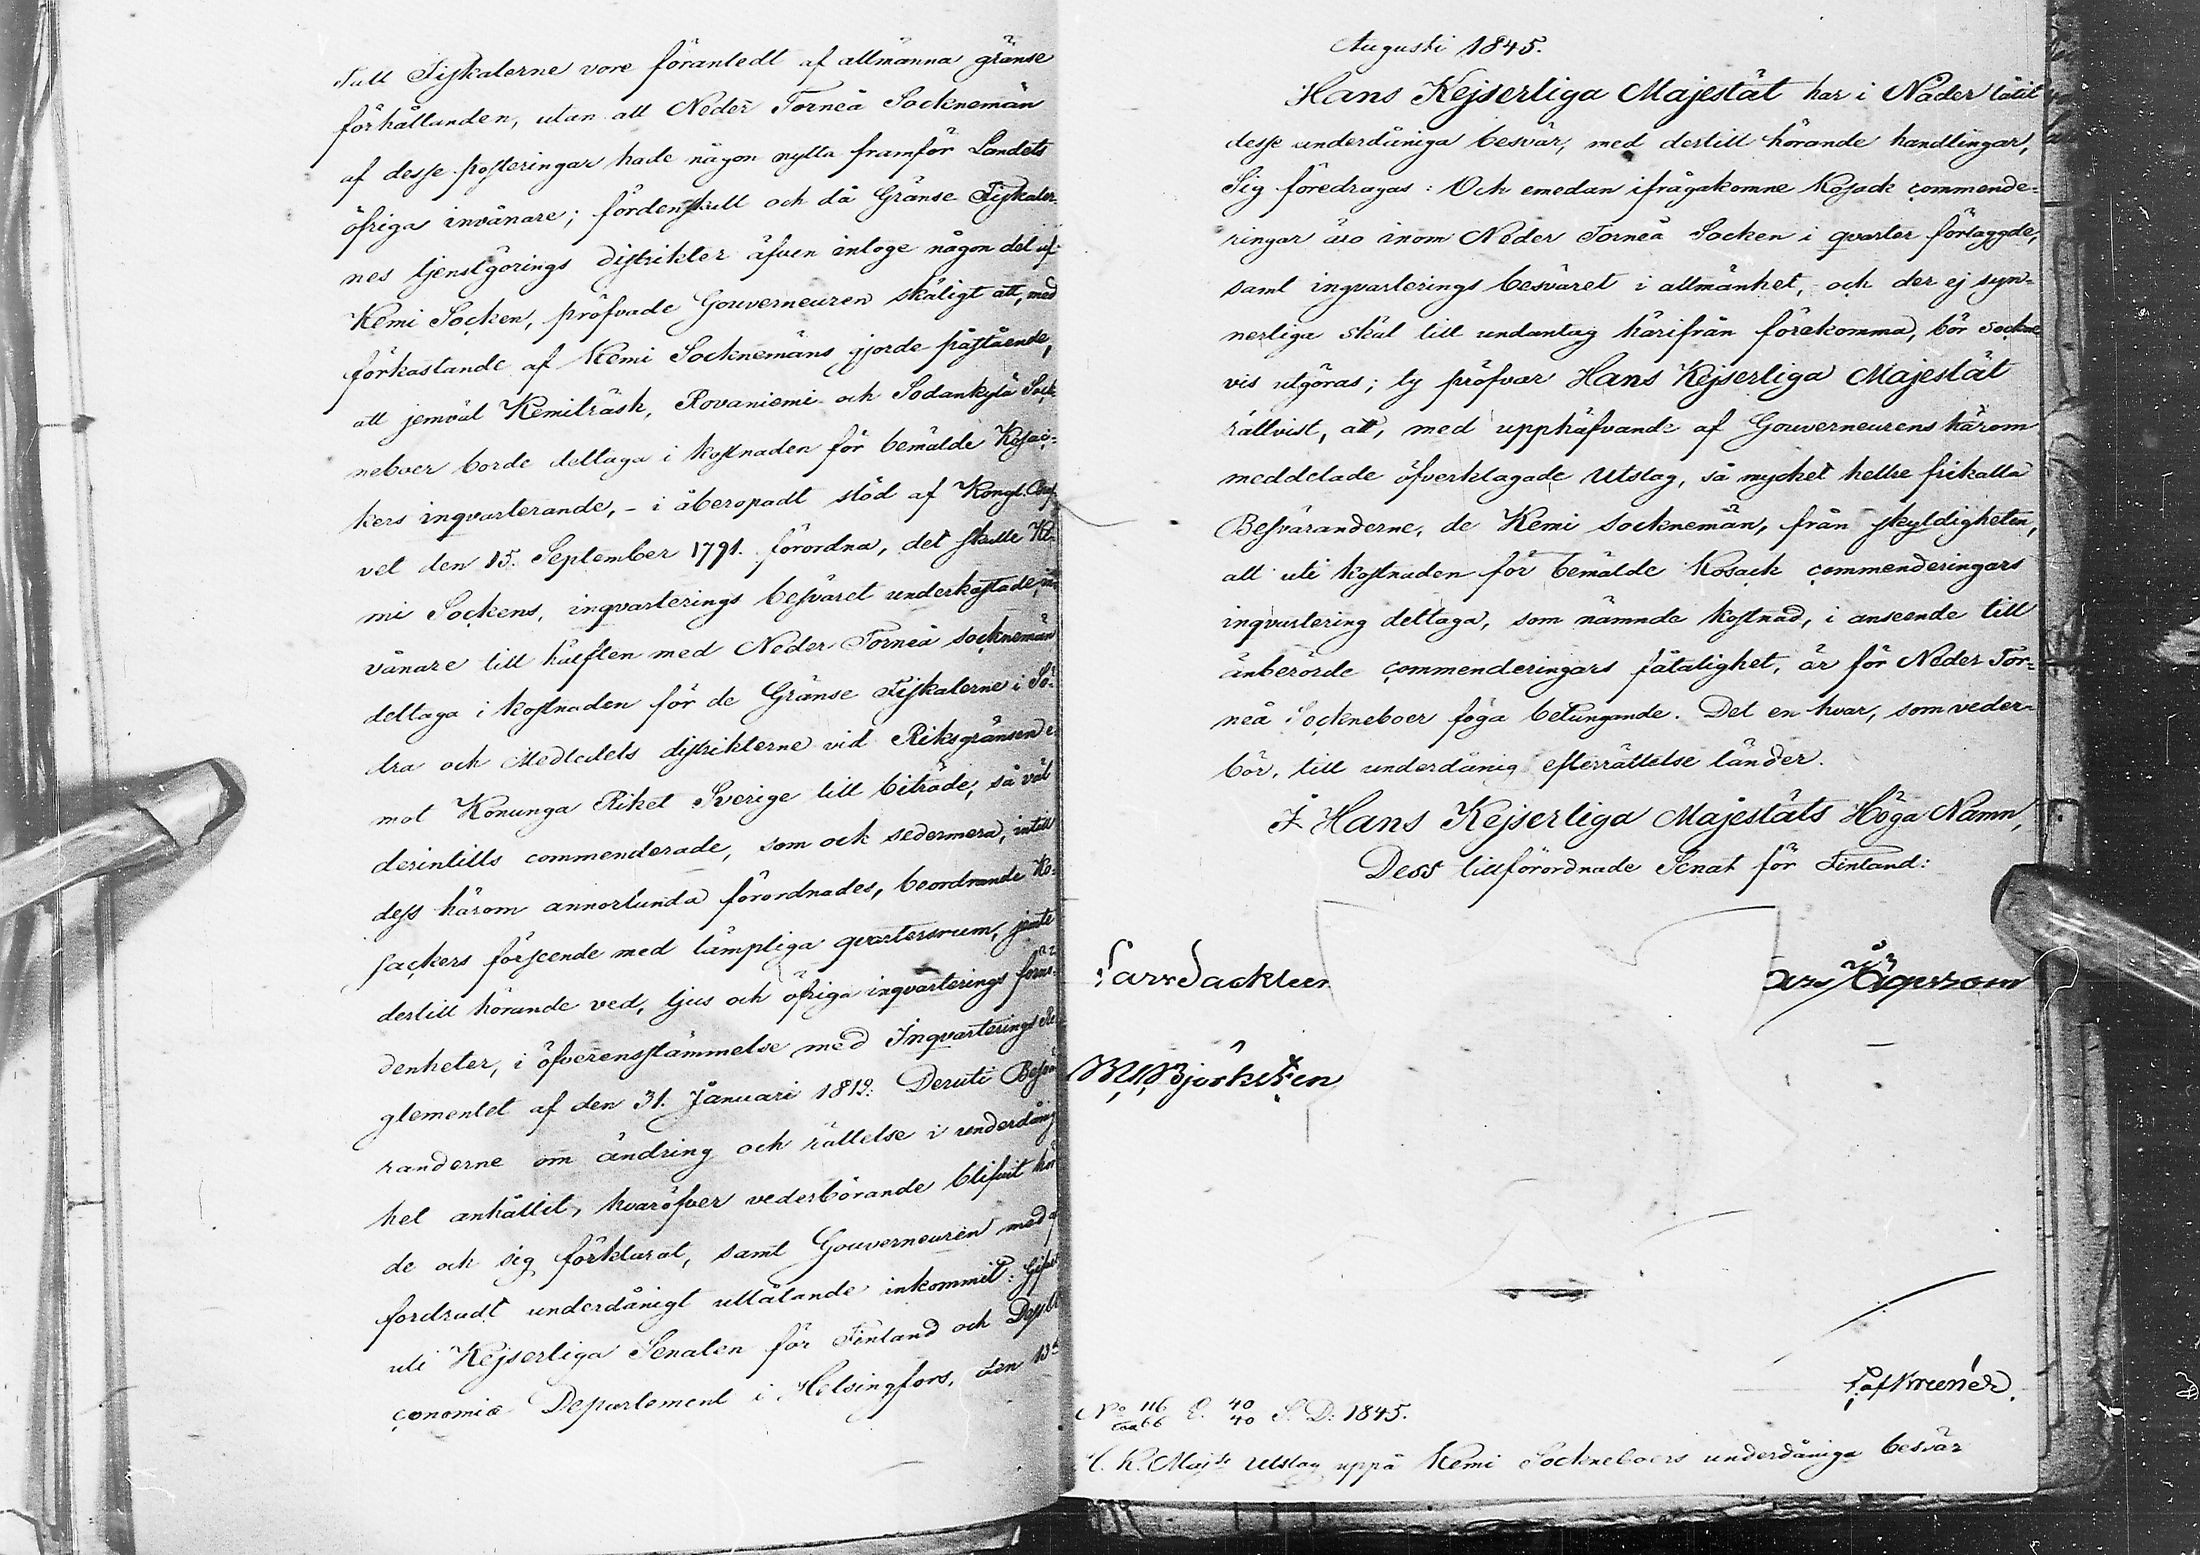 Tull Fiskalerne vore föranledt af allmänna gränse
förhållanden, utan att Neder Torneå Socknemän
af desse posteringar hade någon nytta framför Landets
öfriga invånare; fördenskull och då Gränse Fiskaler-
nes tjenstgörings distrikter äfven intoge någon del af
Kemi Socken, pröfvade Gouverneuren skäligt att, med
förkastande af Kemi Socknemäns gjorde påstående,
att jemväl Kemiträsk, Rovaniemi och Sodankylä Sock-
neboer borde deltaga i kostnaden för bemälde Kosac-
kers inqvarterande, - i åberopadt stöd af Kongl. Bref-
vet den 15. September 1791. förordna, det skulle Ke-
mi Sockens, inqvarterings besväret underkastade, in-
vånare till hälften med Neder Torneå socknemän
deltaga i kostnaden för de Gränse Fiskalerne i Sö-
dra och Medledels distrikterne vid Riksgränsen e-
mot Konunga Riket Sverige till biträde, så väl
derintills commenderade, som ock sedermera, intill
dess härom annorlunda förordnades, beordrande Ko-
sackers förseende med lämpliga qvartersrum, jemte
dertill hörande ved, ljus och öfriga inqvarterings förnö-
denheter, i öfverensstämmelse med Inqvarterings Re-
glementet af den 31. Januari 1812: Deruti Besvä-
randerne om ändring och rättelse i underdånig-
het anhållit, hvaröfver vederbörande blifvit hör-
de och sig förklarat, samt Gouverneuren med af-
fordradt underdånigt utlåtande inkommit: Gifvet
uti Kejserliga Senaten för Finland och Dess
conomie Departement i Helsingfors, den 13
Augusti 1845.
Hans Kejserliga Majestät har i Nåder låtit
desse underdåniga besvär, med dertill hörande handlingar,
Sig föredragas: Och emedan ifrågakomne Kosack commende-
ringar äro inom Neder Torneå Socken i qvarter förlaggde,
samt inqvarterings besväret i allmänhet, och der ej syn-
nerliga skäl till undantag härifrån förekomma, bör sockne
vis utgöras; ty pröfvar Hans Kejserliga Majestät
rättvist, att, med upphäfvande af Gouverneurens härom
meddelade öfverklagade Utslag, så mycket hellre frikalla
Besväranderne, de Kemi socknemän, från skyldigheten,
att uti kostnaden för bemälde Kosack commenderingars
inqvartering deltaga, som nämnde kostnad, i anseende till
anberörde commenderingars fåtalighet, är för Neder Tor-
neå Sockneboer föga betungande. Det en hvar, som veder-
bör, till underdånig efterrättelse länder.
I Hans Kejserliga Majestäts Höga Namn,
Dess tillförordnade Senat för Finland:
Lars Sackleen
W. Björksten
No 116 66 E. 40 40 S. D. 1845.
H. K. Maj:ts Utslag uppå Kemi Sockneboers underdåniga besvär